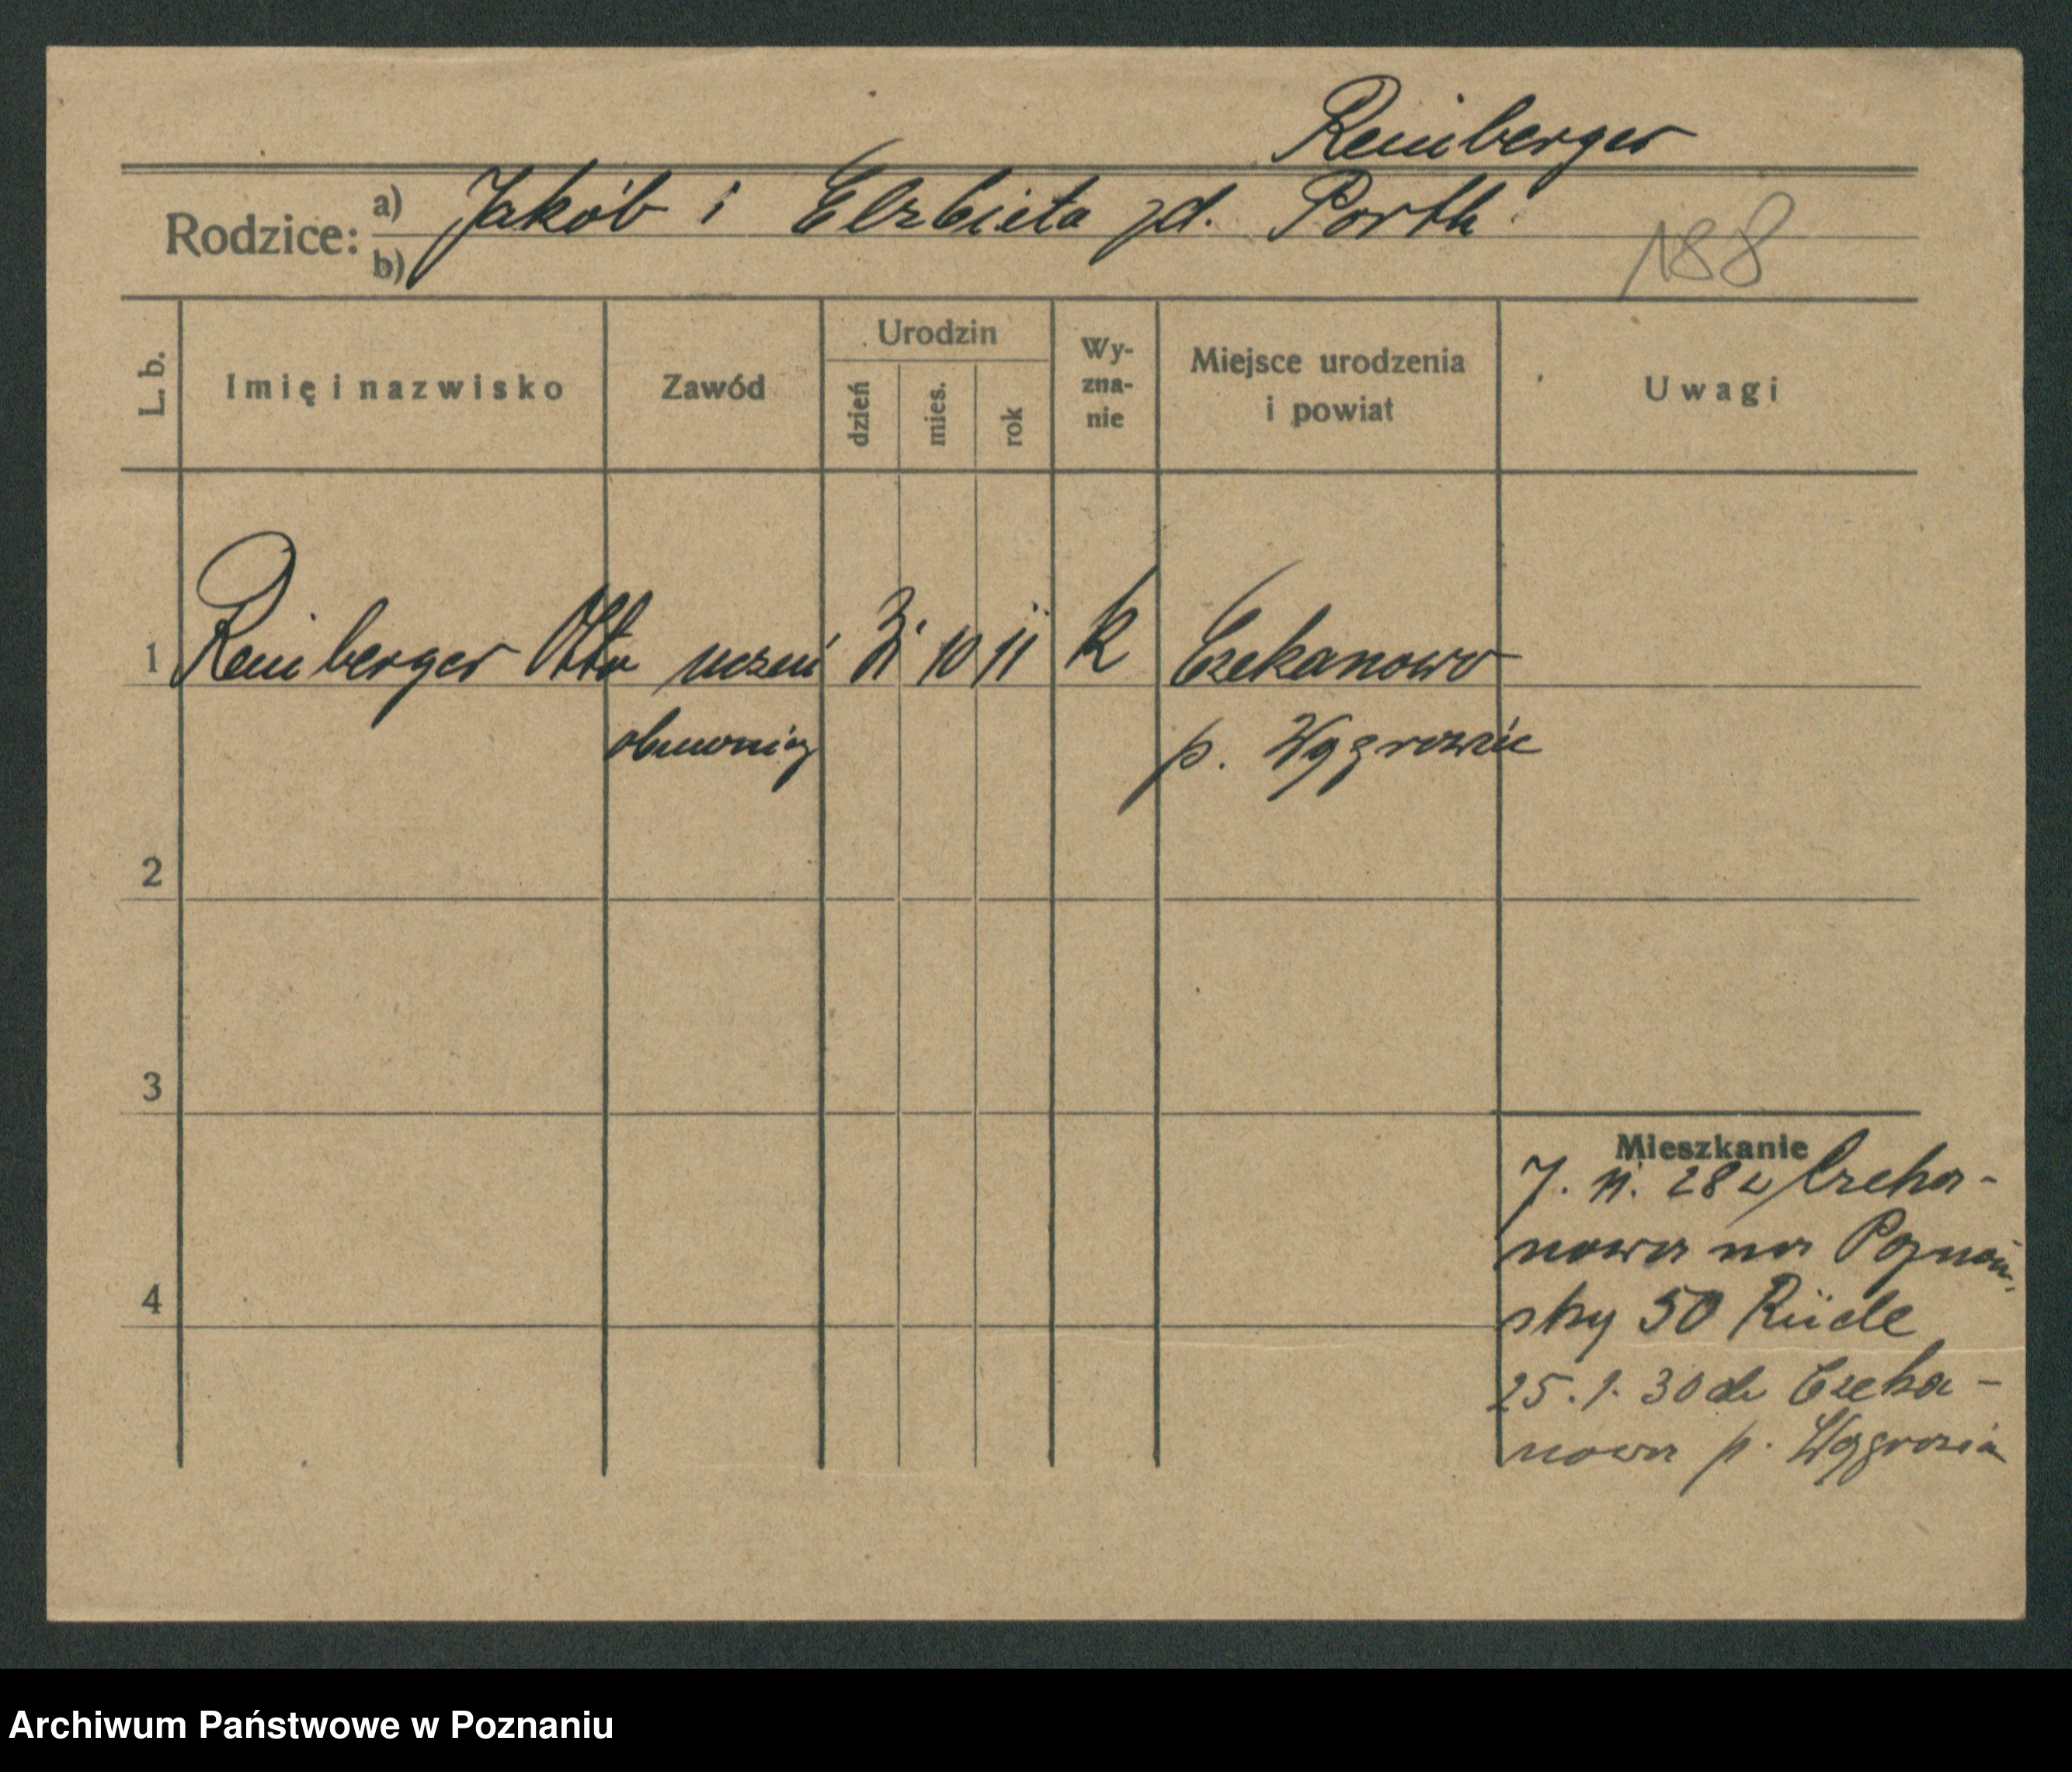 Reinberger
Rodzice: a) Jakób i Elzbieta zd. Porth
b)
188
L. b.
Imię i nazwisko
Zawód
Urodzin
dzień
mies.
rok
Wy-
zna-
nie
Miejsce urodzenia
i powiat
Uwagi
1 Reinberger Otto uczeń 10 11 k Czekanowo
p.
2
3
4
Mieszkanie
7. 11. 28 z Czeka-
nowa na Poznań-
sky 50 Rüde
25. 1. 30 do Czeka-
nowa p.
Archiwum Państwowe w Poznaniu